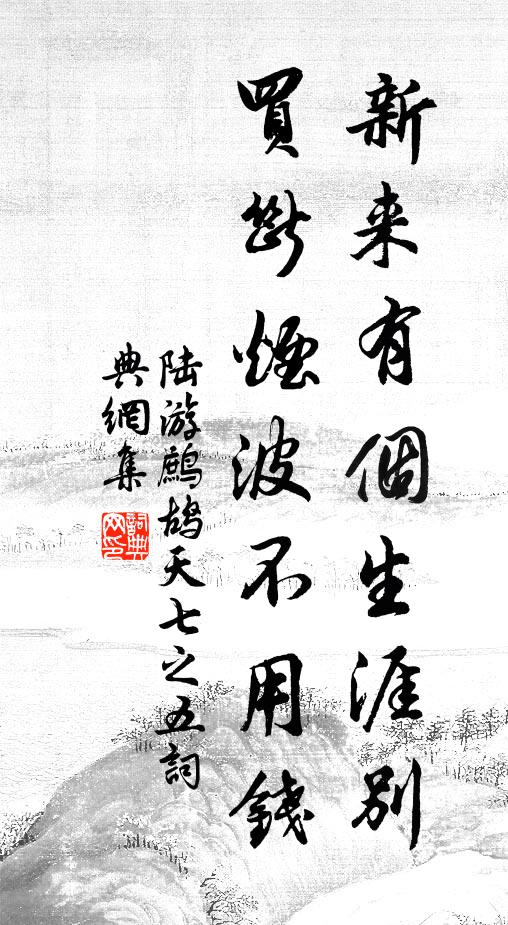 新来有個生涯别
買斷煙波不用錢
陆游鷓鴣天七之五詞
典網集
詞典网印